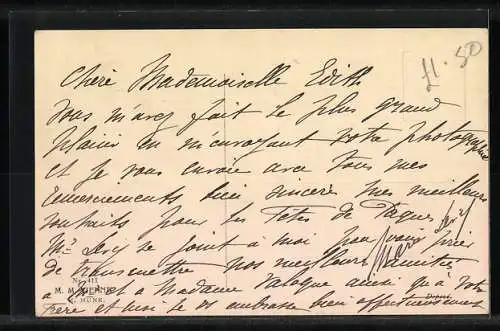 £1.50
Chère Mademoiselle Edith
Vous m'avez fait le plus grand
plaisir en m'envoyant votre photographie
et je vous envoie avec tous mes
remerciements bien sincères mes meilleurs
souhaits pour les Fêtes de Pâques
Mr Levy se joint à moi pour vous prier
de transmettre nos meilleures amitiés
à et à Madame ainsi qu'à votre
frère et moi je vous embrasse bien affectueusement
Nr. 411
M. M. VIENNE
M. MUNK